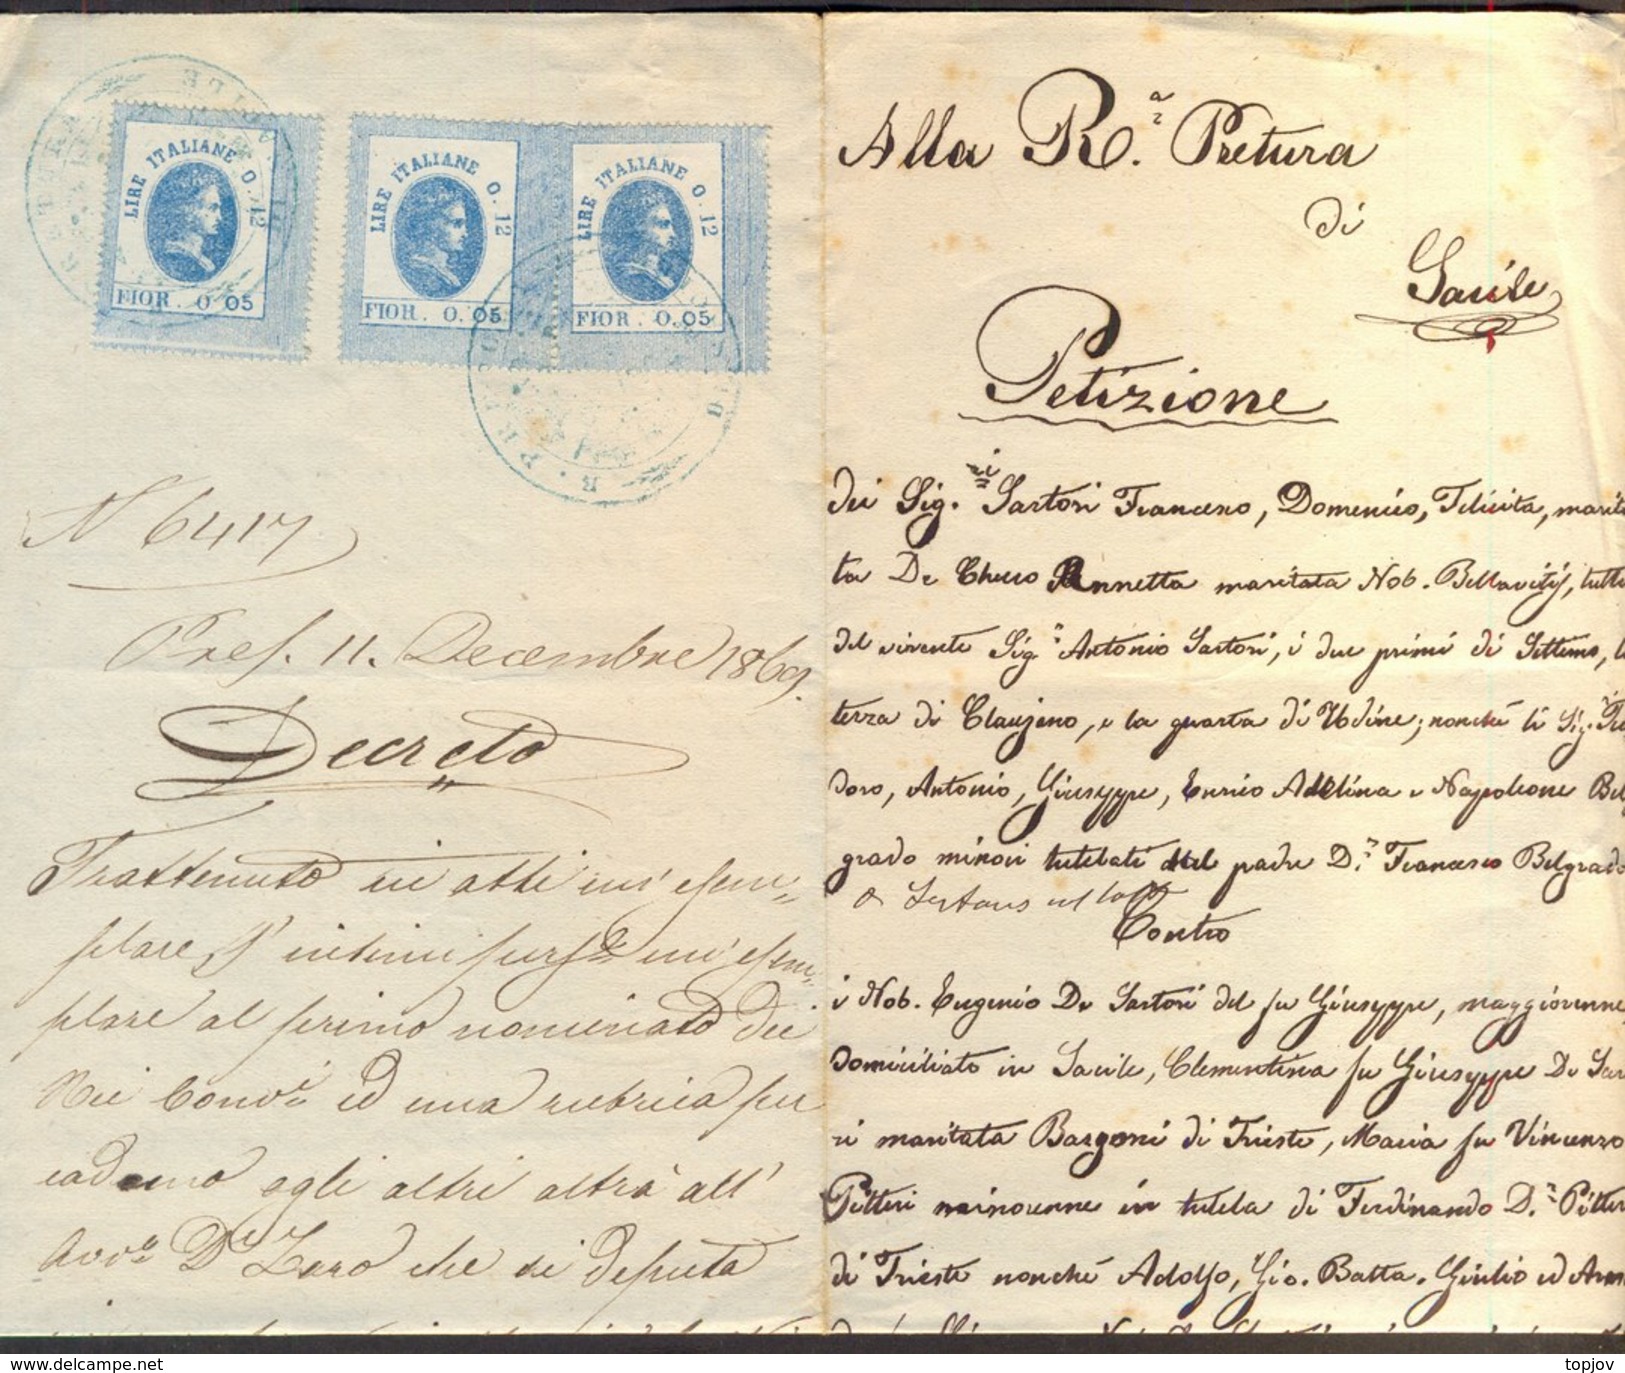 LIRE ITALIANE 0.12
FIOR. 0.05
LIRE ITALIANE 0.12
FIOR. 0.05
LIRE ITALIANE 0.12
FIOR. 0.05
N 6417
Pres. 11. Decembre 1869.
Decreto
Trattenuto in atti un' esem-
plare, s' intimi un' esem-
plare al primo nominato dei
Rei Conv.i ed una rubrica per
cadauno agli altri altra all'
Avv.o D.r Zaro che si deputa
Alla R.a Pretura
di
Sacile
Petizione
dei Sig.i Sartori Francesco, Domenico, Felicita, marita
ta De Checo Annetta maritata Nob. Bellavitis, tutti
del vivente Sig.r Antonio Sartori, i due primi di Settimo, la
terza di Claujano, e la quarta di Udine; nonché li Sig.i
doro, Antonio, Giuseppe, Enrico Adelina e Napoleone Bel
grado minori tutelati dal padre D.r Francesco Belgrado
Contro
i Nob. Eugenio De Sartori del fu Giuseppe, maggiorenne,
domiciliato in Sacile, Clementina fu Giuseppe De Sar
ri maritata Bargoni di Trieste, Maria fu Vincenzo
Pitteri minorenne in tutela di Ferdinando D.r Pitter
di Trieste nonché Adolfo, Gio. Batta. Giulio ed
delcampe.net
topjov